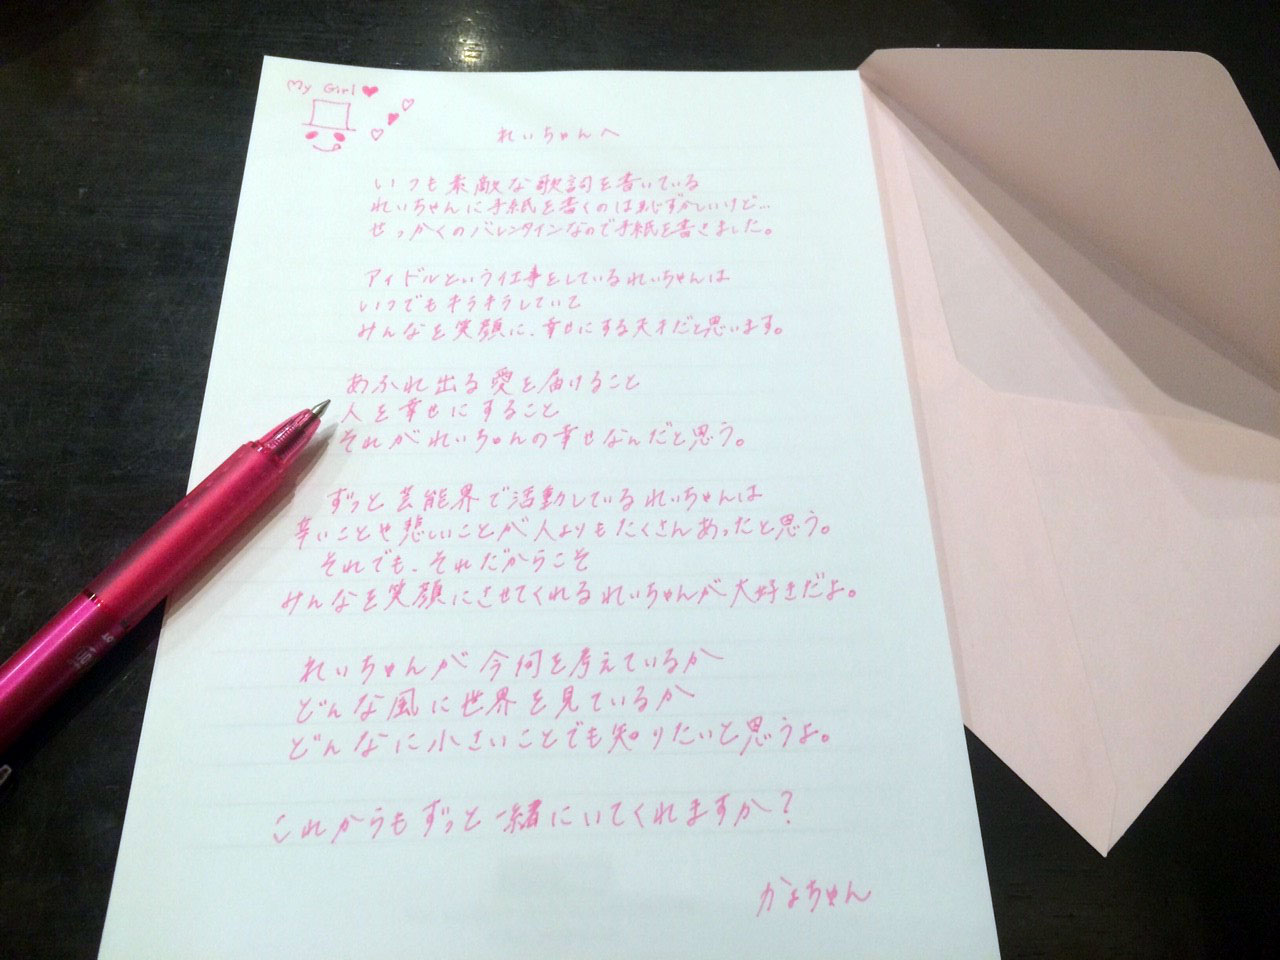 My Girl
れいちゃんへ
いつも素敵な歌詞を書いている
れいちゃんに手紙を書くのは恥ずかしいけど…
せっかくのバレンタインなので手紙を書きました。
アイドルという仕事をしているれいちゃんは
いつでもキラキラしていて
みんなを笑顔に、幸せにする天才だと思います。
あふれ出る愛を届けること
人を幸せにすること
それがれいちゃんの幸せなんだと思う。
ずっと芸能界で活動しているれいちゃんは
辛いことや悲しいことが人よりもたくさんあったと思う。
それでも、それだからこそ
みんなを笑顔にさせてくれるれいちゃんが大好きだよ。
れいちゃんが今何を考えているか
どんな風に世界を見ているか
どんなに小さいことでも知りたいと思うよ。
これからもずっと一緒にいてくれますか？
かよちゃん